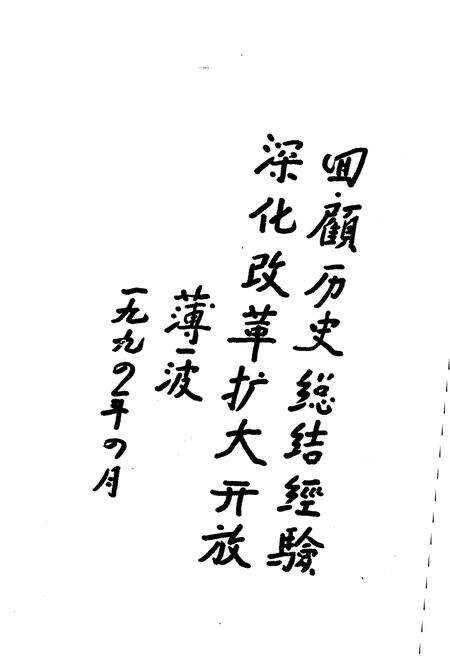 回顧历史總结經驗
深化改革扩大开放
薄一波
一九九四年四月